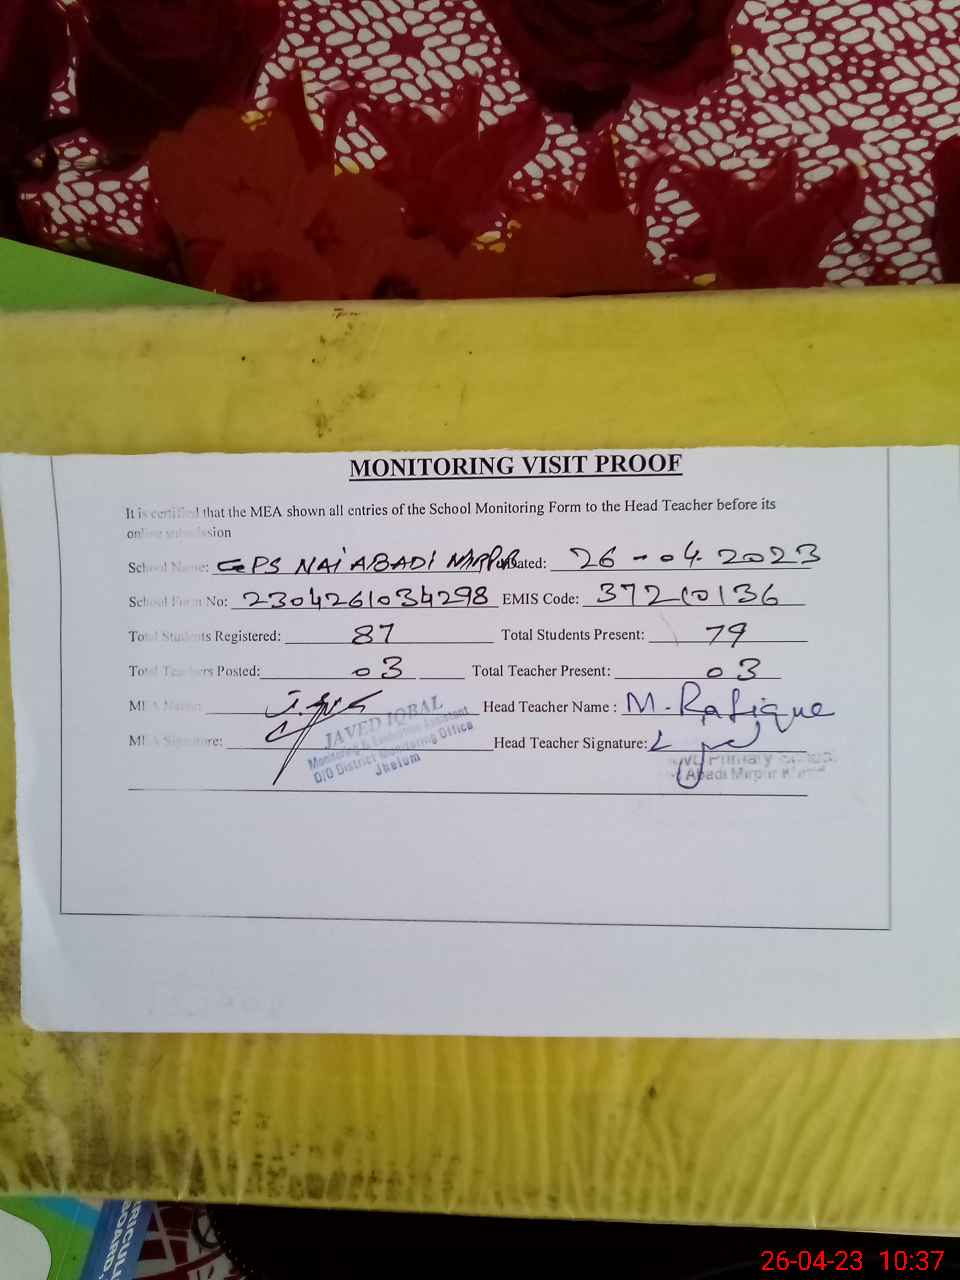 MONITORING VISIT PROOF
It is certified that the MEA shown all entries of the School Monitoring Form to the Head Teacher before its
online submission
School Name: GPS NAI ABADI MIRPUR Dated: 26-04-2023
School Form No: 2304261034298 EMIS Code: 37210136
Total Students Registered: 87 Total Students Present: 79
Total Teachers Posted: 03 Total Teacher Present: 03
MEA Name: Head Teacher Name : M. Rafique
MEA Signature: Head Teacher Signature:
JAVED IQBAL
Monitoring & Evaluation Assistant
O/O District Monitoring Office
Jhelum
Primary School
Abadi Mirpur
26-04-23 10:37